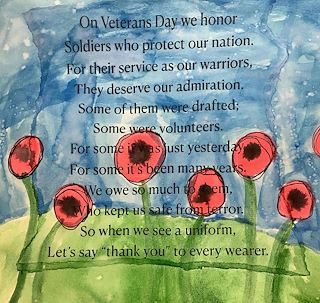 On Veterans Day we honor
Soldiers who protect our nation.
For their service as our warriors,
They deserve our admiration.
Some of them were drafted;
Some were volunteers.
For some it was just yesterday
For some it's been many years.
We owe so much to them,
Who kept us safe from terror.
So when we see a uniform,
Let's say "thank you" to every wearer.